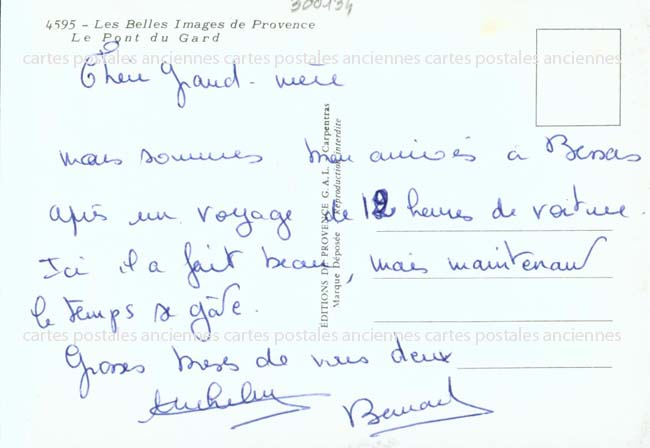 300134
4595 - Les Belles Images de Provence
Le Pont du Gard
cartes postales anciennes cartes postales anciennes cartes postales anciennes
Chere Grand-mère
nous sommes bien arrivés à Bessas
après un voyage de 12 heures de voiture.
Ici il a fait beau, mais maintenant
le temps se gâte.
cartes postales anciennes cartes postales anciennes cartes postales anciennes
Grosses bises de nous deux
Bernard
EDITIONS DE PROVENCE G.A.L. Carpentras
Marque Déposée Reproduction interdite